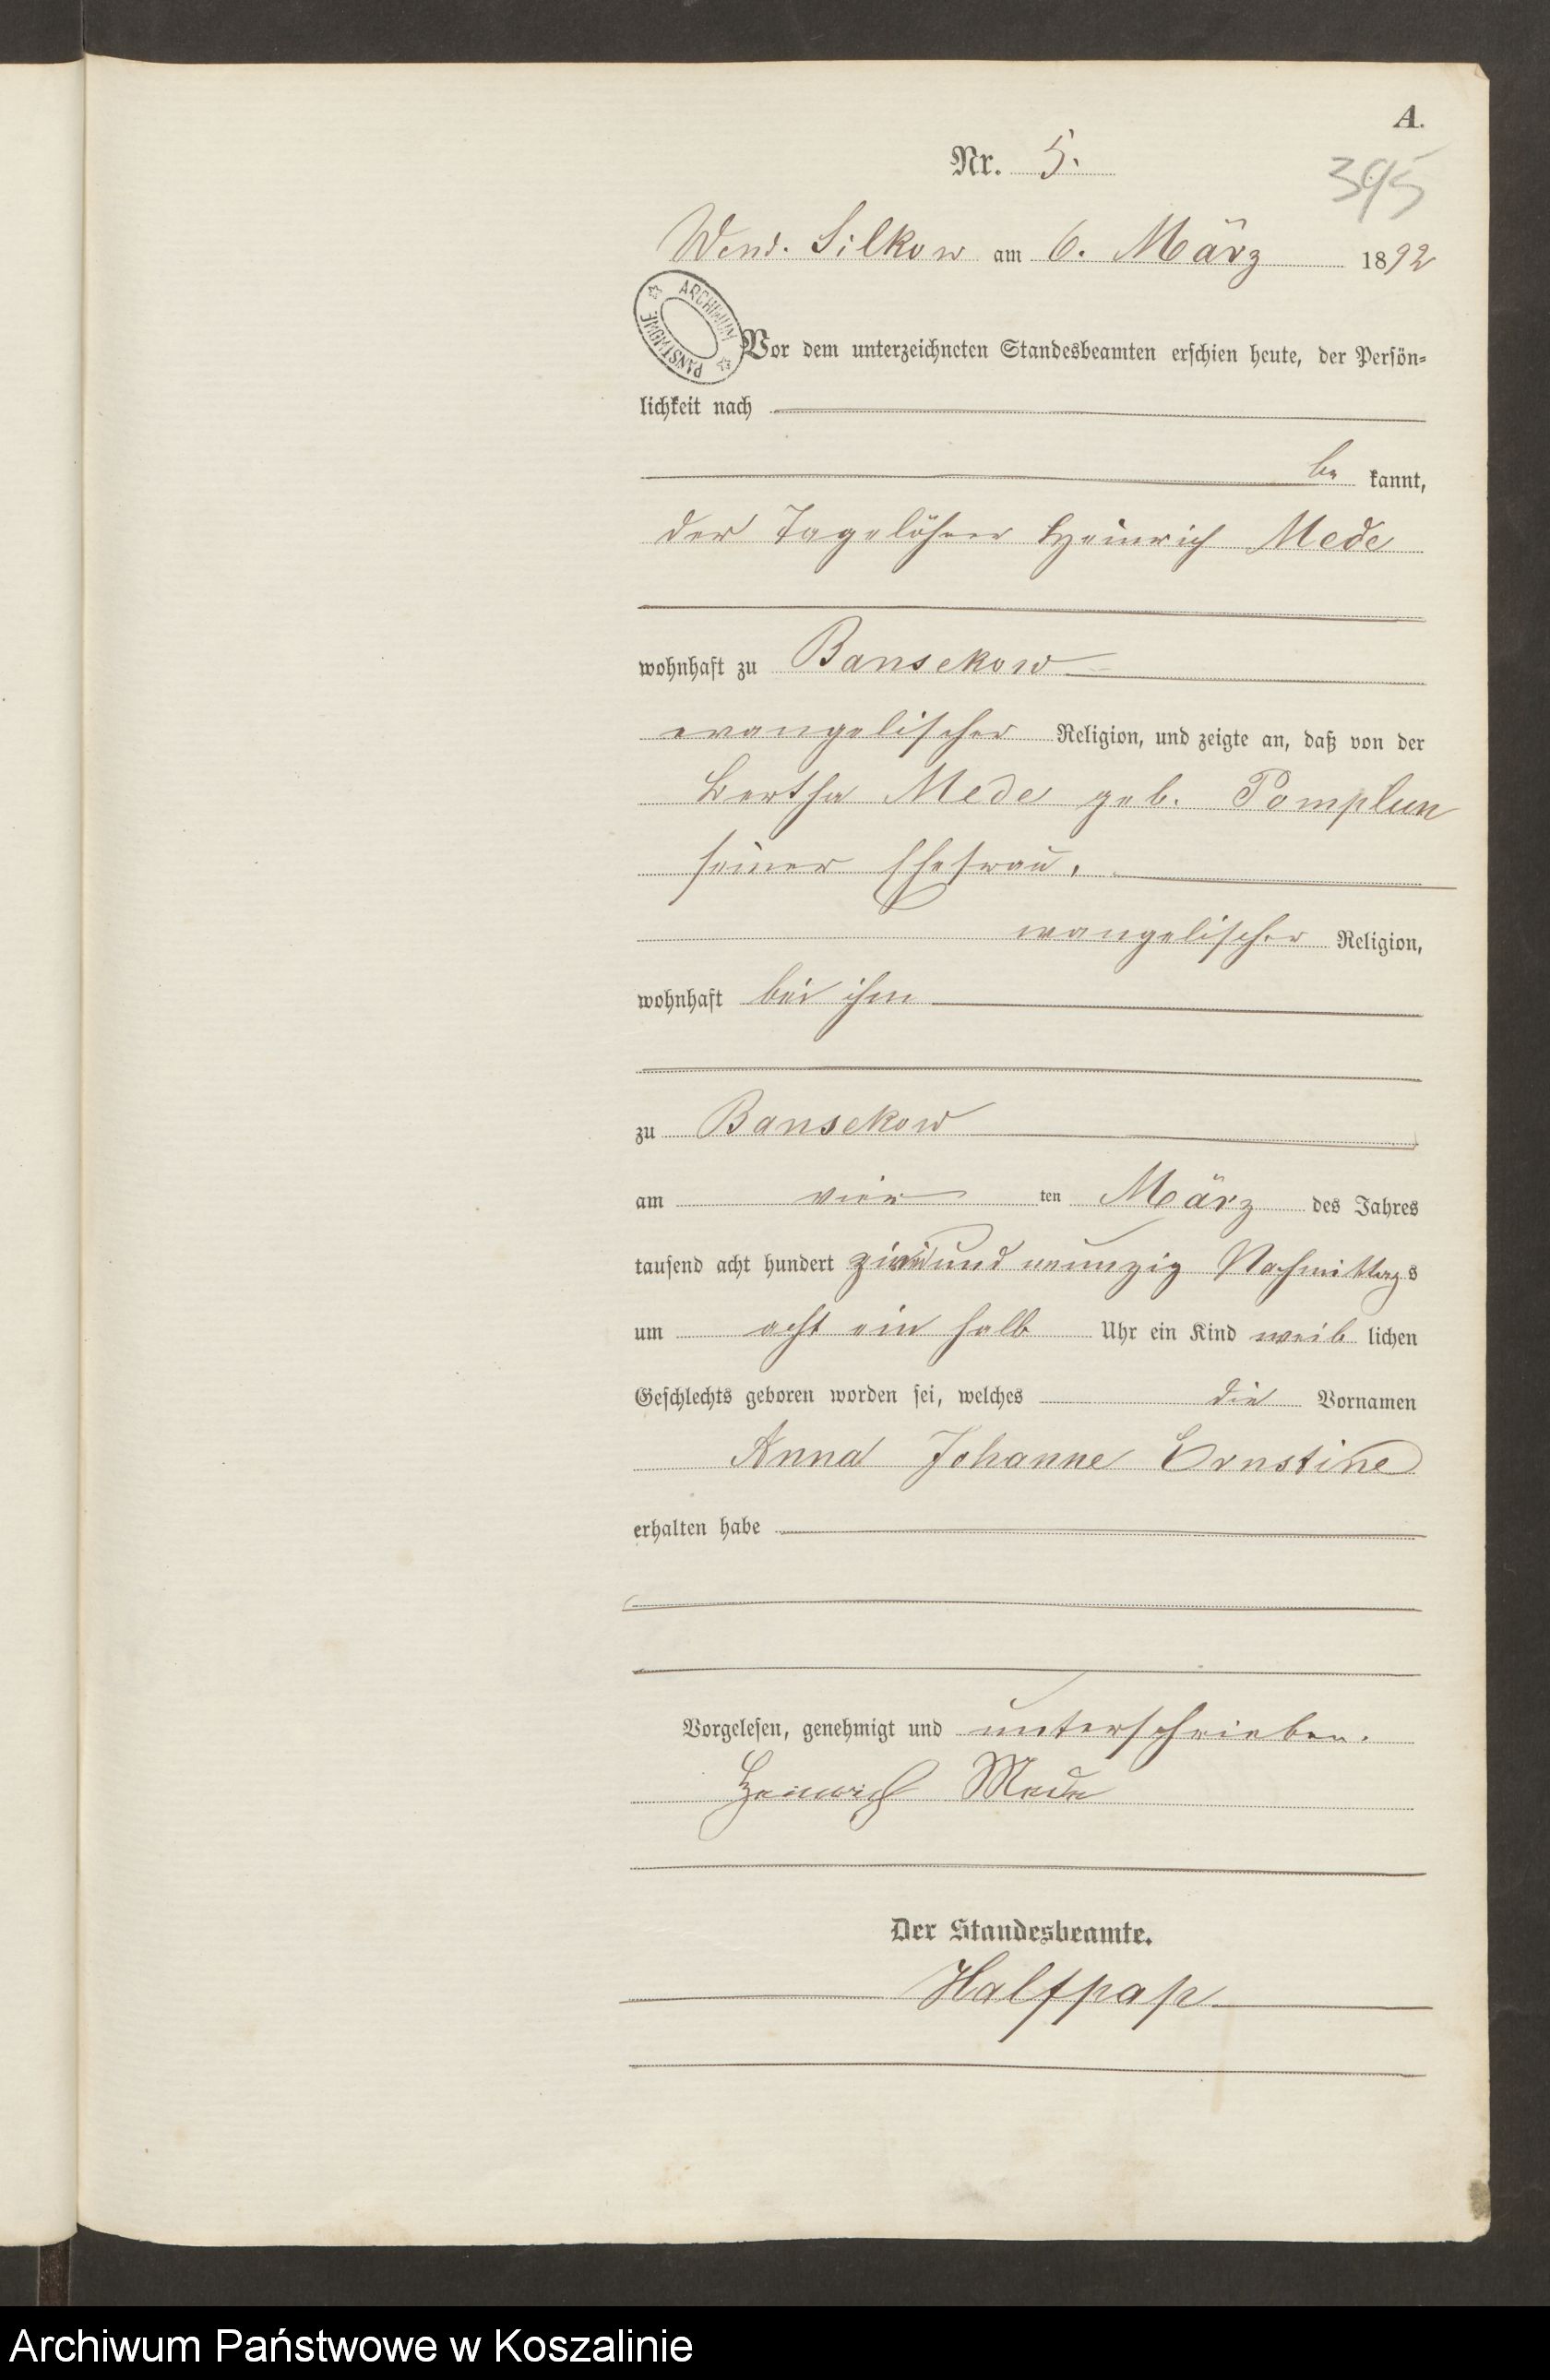 A.
Nr. 5.
395
Wend. Silkow am 6. März 1892
ARCHIWUM PAŃSTWOWE
Vor dem unterzeichneten Standesbeamten erschien heute, der Persön-
lichkeit nach
be kannt,
der Tagelöhner Heinrich Mede
wohnhaft zu Bansekow
evangelischer Religion, und zeigte an, daß von der
Bertha Mede geb. Pomplun
seiner Ehefrau,
evangelischer Religion,
wohnhaft bei ihm
zu Bansekow
am vier ten März des Jahres
tausend acht hundert zwei und neunzig Nachmittags
um acht ein halb Uhr ein Kind weib lichen
Geschlechts geboren worden sei, welches die Vornamen
Anna Johanne Ernstine
erhalten habe
Vorgelesen, genehmigt und unterschrieben.
Heinrich Mede
Der Standesbeamte.
Halfpap
Archiwum Państwowe w Koszalinie